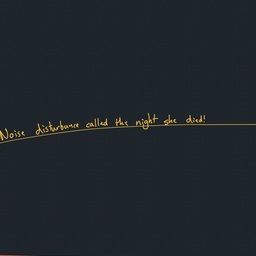 Noise disturbance called the night she died!